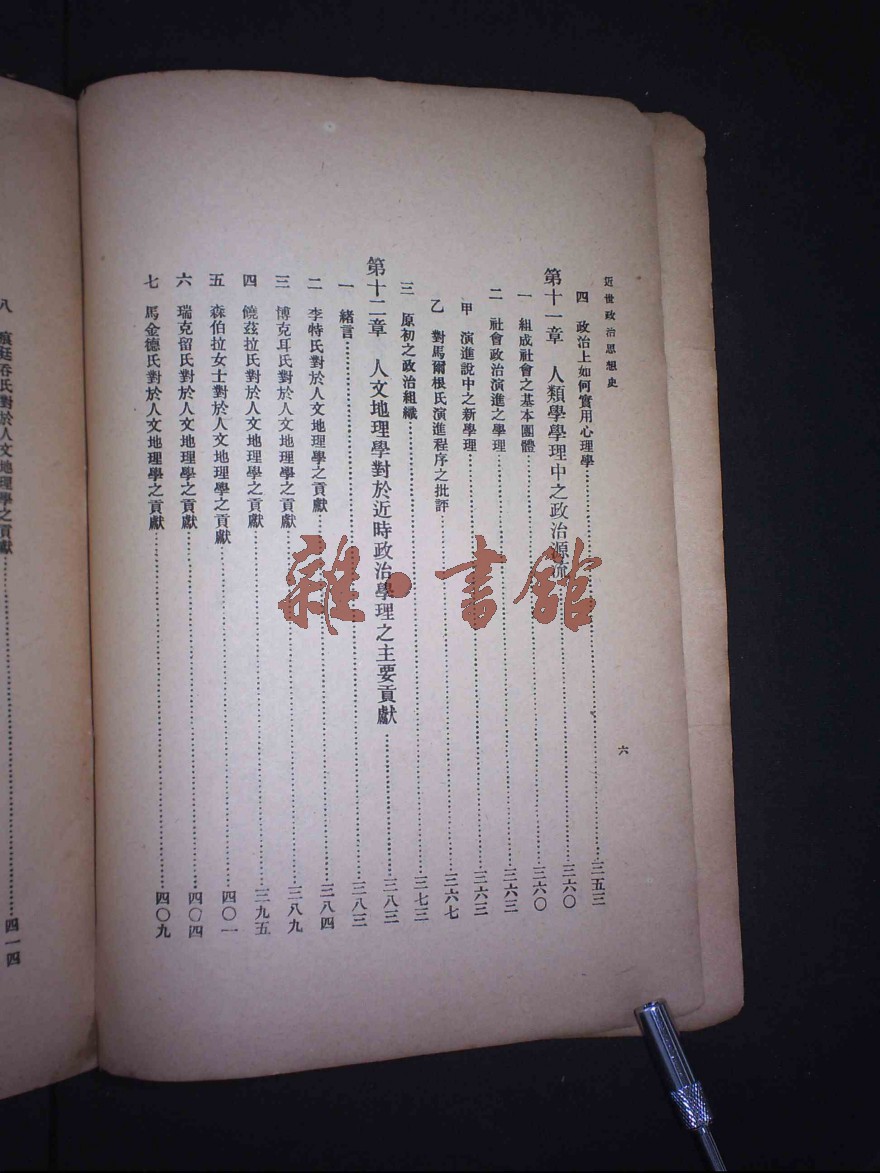 近世政治思想史
六
四 政治上如何實用心理學……三五三
第十一章 人類學學理中之政治源流……三六〇
一 組成社會之基本團體……三六〇
二 社會政治演進之學理……三六三
甲 演進說中之新學理……三六三
乙 對馬爾根氏演進程序之批評……三六七
三 原初之政治組織……三七三
第十二章 人文地理學對於近時政治學理之主要貢獻……三八三
一 緒言……三八三
二 李特氏對於人文地理學之貢獻……三八四
三 博克耳氏對於人文地理學之貢獻……三八九
四 饒茲拉氏對於人文地理學之貢獻……三九五
五 森伯拉女士對於人文地理學之貢獻……四〇一
六 瑞克留氏對於人文地理學之貢獻……四〇四
七 馬金德氏對於人文地理學之貢獻……四〇九
八 氏對於人文地理學之貢獻……四一四
雜·書館